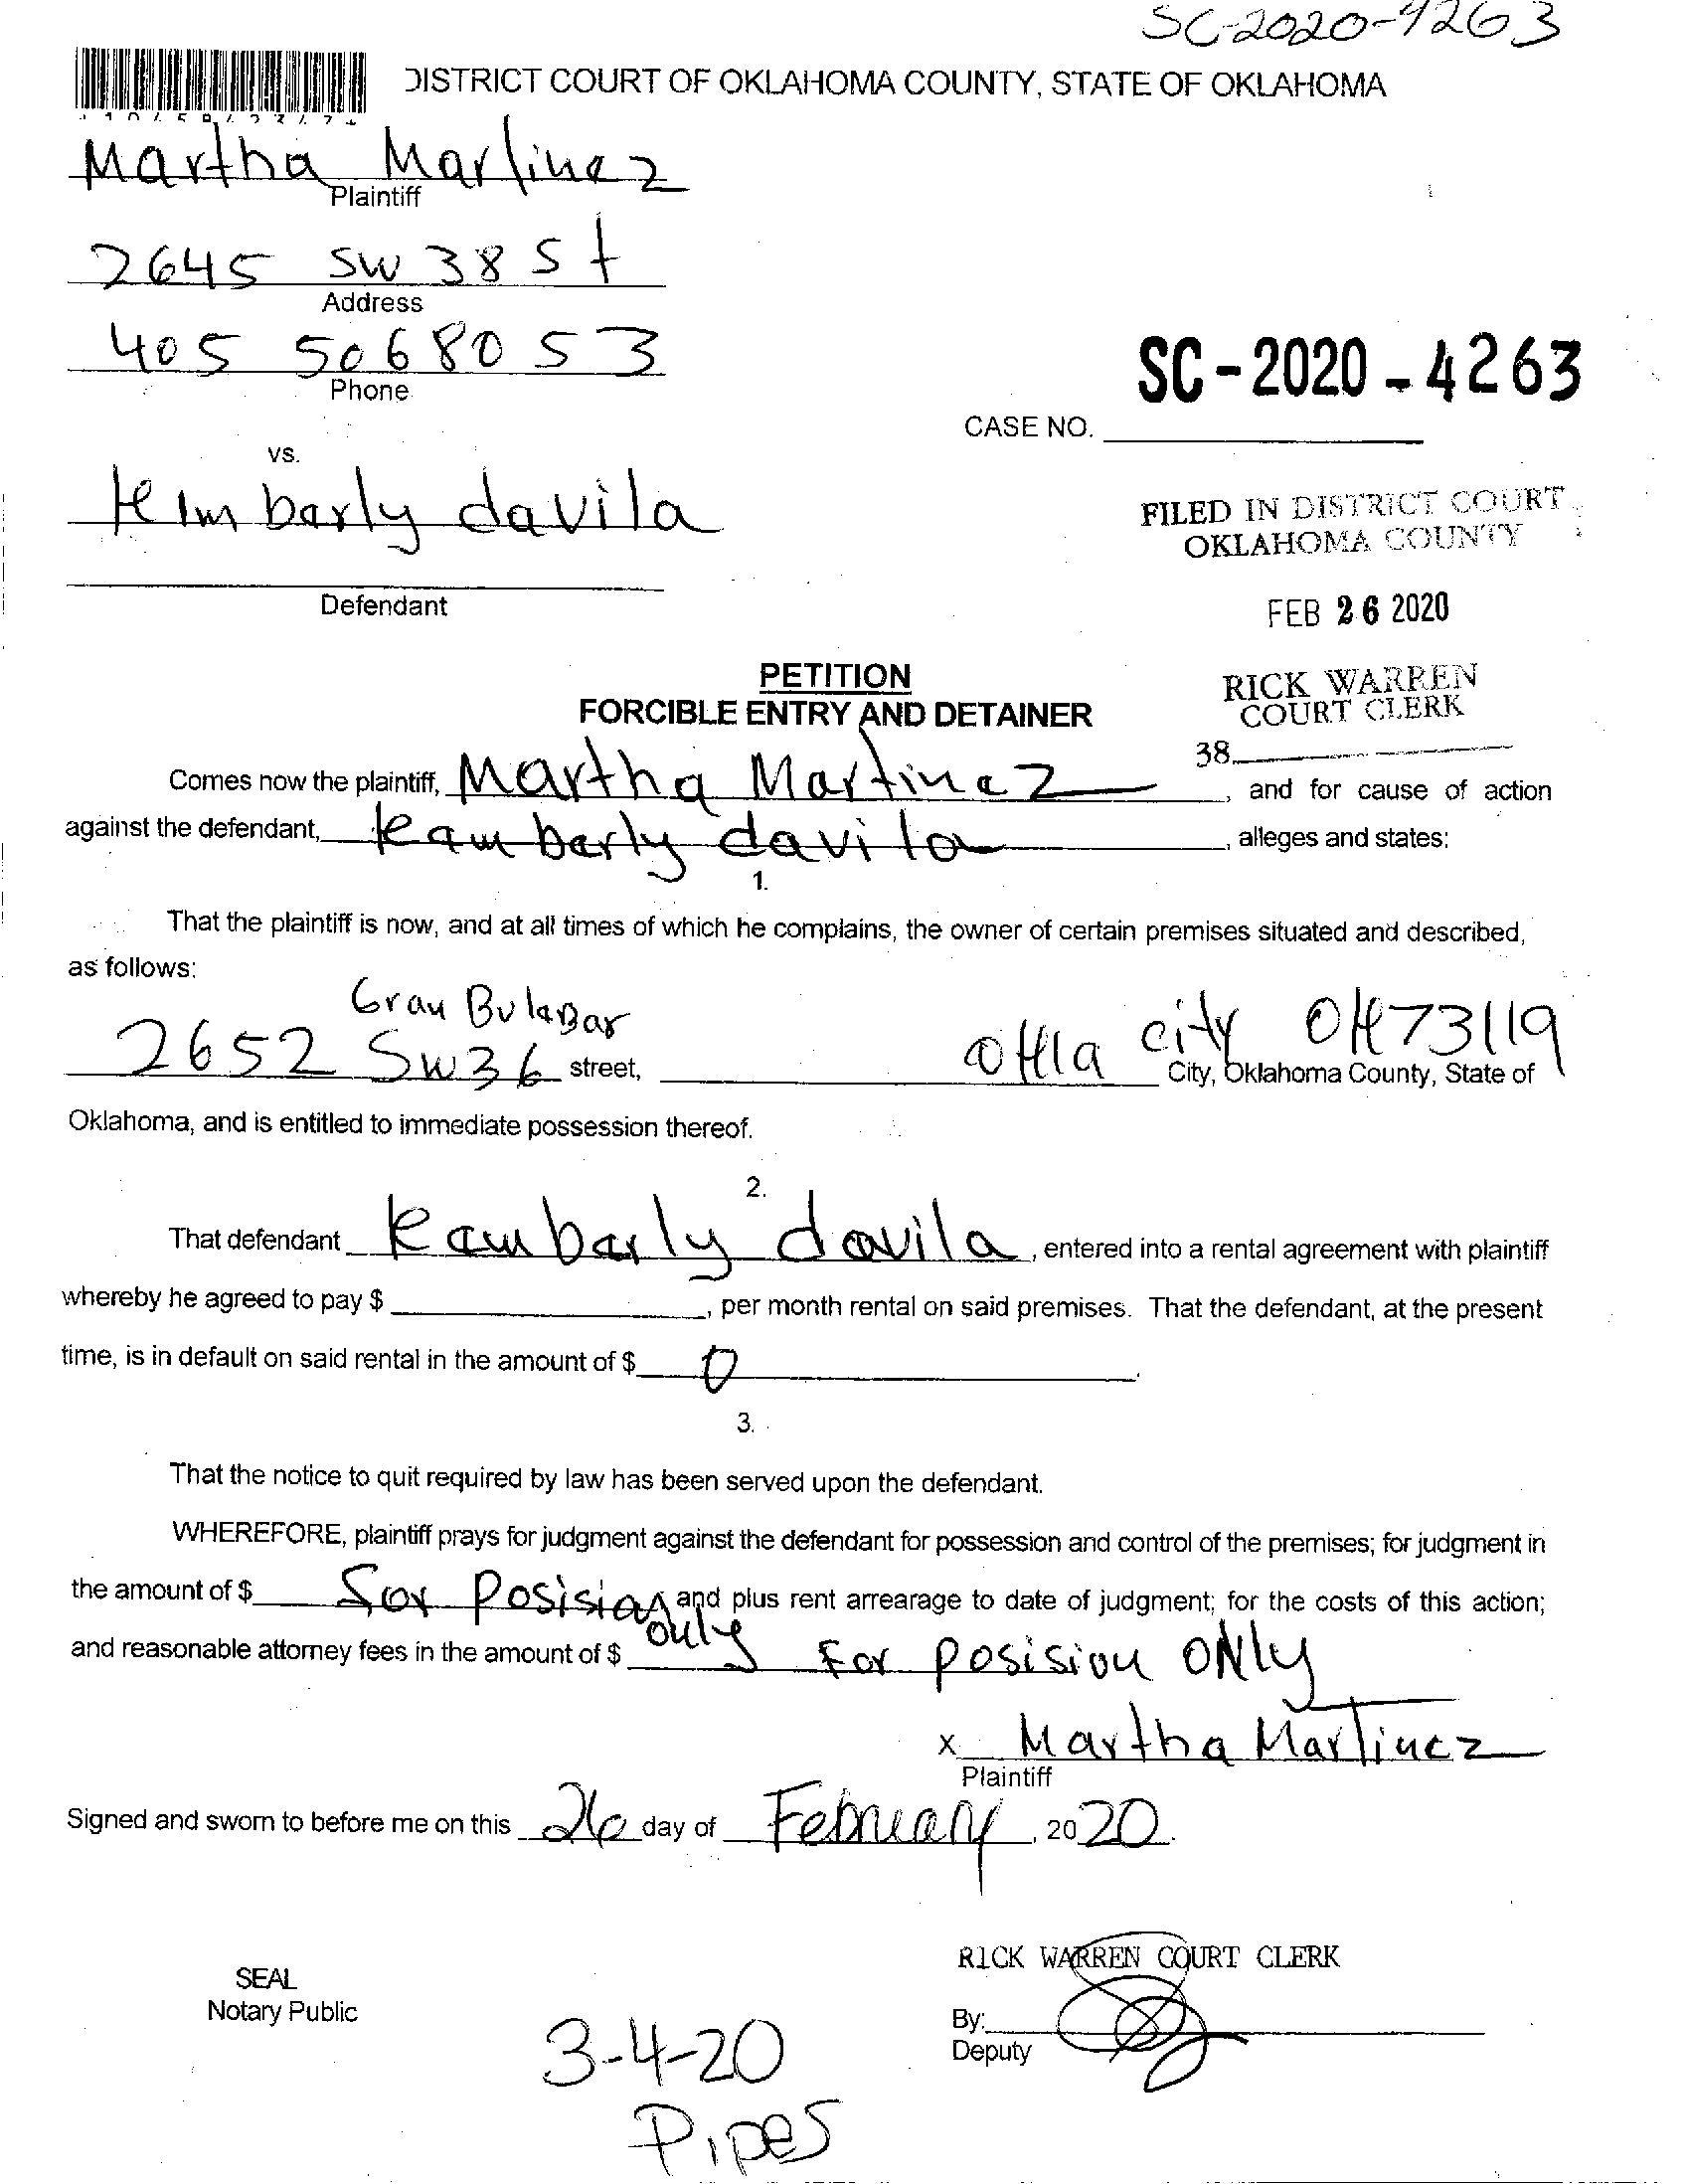 SC-2020-4263
DISTRICT COURT OF OKLAHOMA COUNTY, STATE OF OKLAHOMA
Martha Martinez
Plaintiff
2645 SW 38 St
Address
405 506 8053
Phone
SC-2020-4263
CASE NO.
vs.
Kimberly davila
FILED IN DISTRICT COURT
OKLAHOMA COUNTY
Defendant
FEB 26 2020
PETITION
FORCIBLE ENTRY AND DETAINER
RICK WARREN
COURT CLERK
38
Comes now the plaintiff, Martha Martinez, and for cause of action
against the defendant, Kamberly davila, alleges and states:
1.
That the plaintiff is now, and at all times of which he complains, the owner of certain premises situated and described,
as follows:
Gran
2652 SW 36 street, Okla city OK 73119 City, Oklahoma County, State of
Oklahoma, and is entitled to immediate possession thereof.
2.
That defendant Kamberly davila, entered into a rental agreement with plaintiff
whereby he agreed to pay $, per month rental on said premises. That the defendant, at the present
time, is in default on said rental in the amount of $ 0.
3.
That the notice to quit required by law has been served upon the defendant.
WHEREFORE, plaintiff prays for judgment against the defendant for possession and control of the premises; for judgment in
the amount of $ for Posision only and plus rent arrearage to date of judgment; for the costs of this action;
and reasonable attorney fees in the amount of $ For posision ONly
x Martha Martinez
Plaintiff
Signed and sworn to before me on this 26 day of February, 2020.
RICK WARREN COURT CLERK
SEAL
Notary Public
By:
Deputy
3-4-20
Pipes